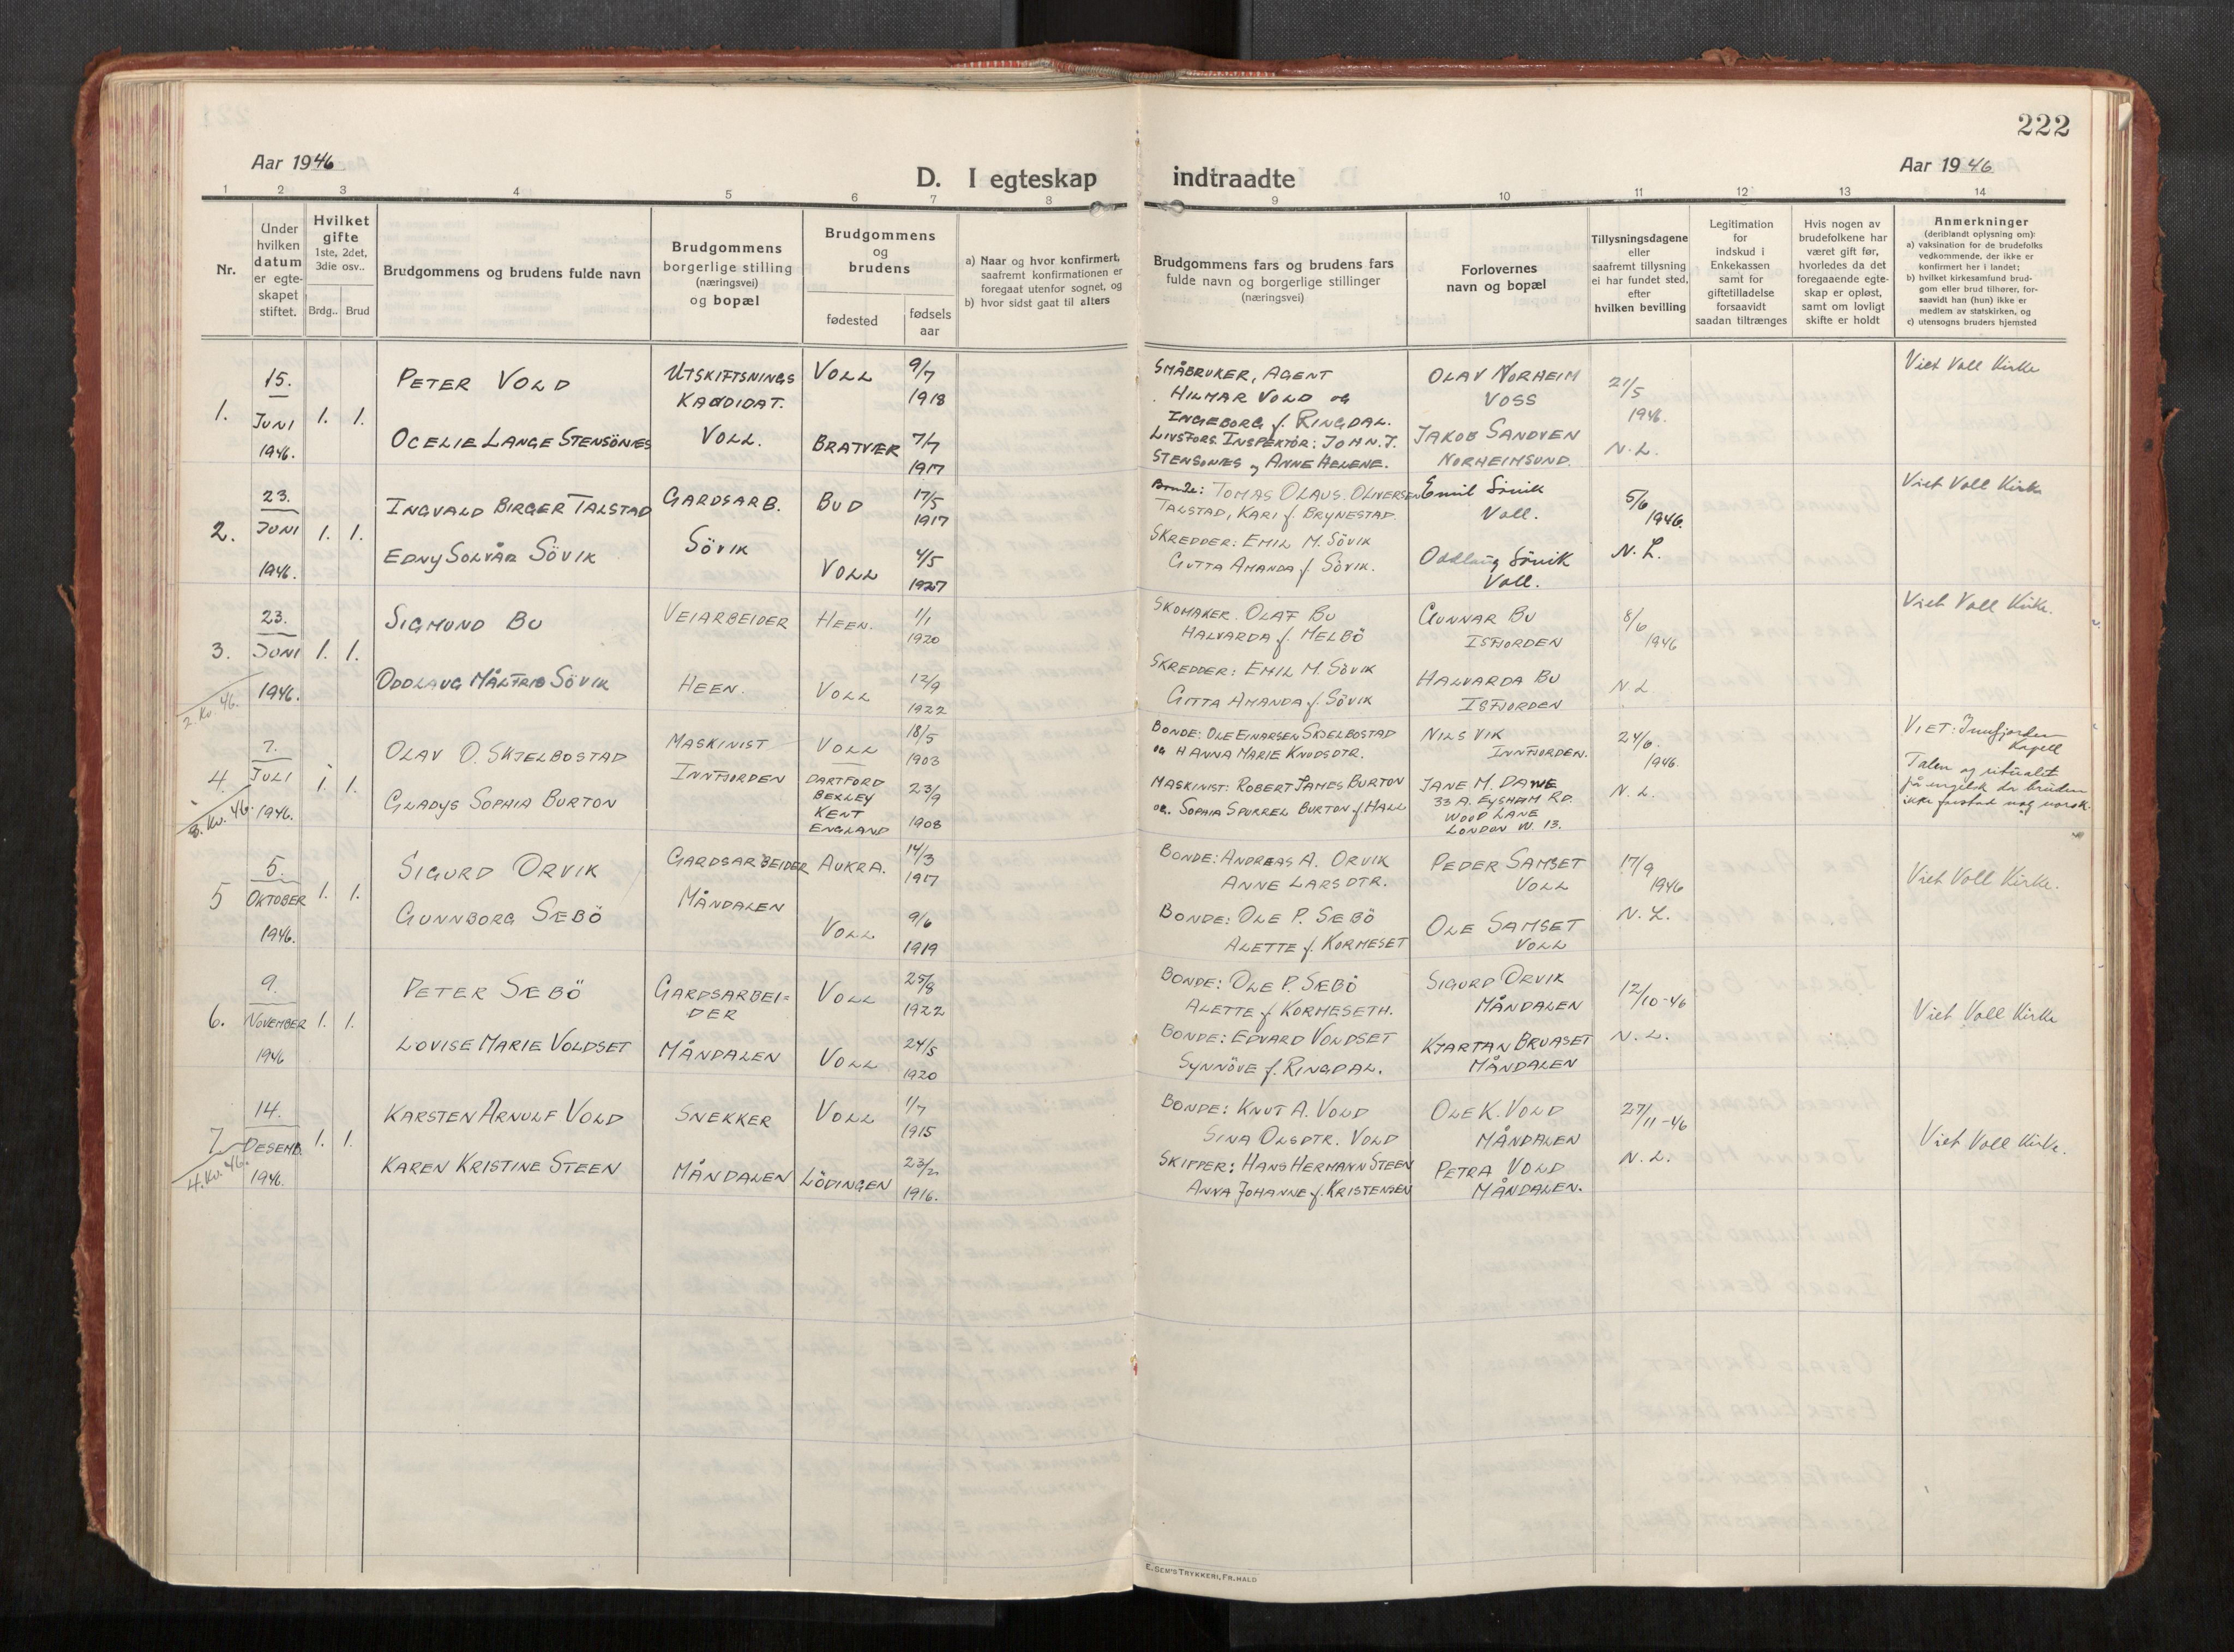 222
Aar 1946
Aar 1946
D. I egteskap indtraadte
1 2 3 4 5 6 7 8 9 10 11 12 13 14
Nr.
Under
hvilken
datum
er egte-
skapet
stiftet.
Hvilket
gifte
1ste, 2det,
3die osv..
Brdg.. Brud
Brudgommens og brudens fulde navn
Brudgommens
borgerlige stilling
(næringsvei)
og bopæl
Brudgommens
og
brudens
fødested
fødsels
aar
a) Naar og hvor konfirmert,
saafremt konfirmationen er
foregaat utenfor sognet, og
b) hvor sidst gaat til alters
Brudgommens fars og brudens fars
fulde navn og borgerlige stillinger
(næringsvei)
Forlovernes
navn og bopæl
Tillysningsdagene
eller
saafremt tillysning
ei har fundet sted,
efter
hvilken bevilling
Legitimation
for
indskud i
Enkekassen
samt for
giftetilladelse
forsaavidt
saadan tiltrænges
Hvis nogen av
brudefolkene har
været gift før,
hvorledes da det
foregaaende egte-
skap er opløst,
samt om lovligt
skifte er holdt
Anmerkninger
(deriblandt oplysning om):
a) vaksination for de brudefolks
vedkommende, der ikke er
konfirmert her i landet;
b) hvilket kirkesamfund brud-
gom eller brud tilhører, for-
saavidt han (hun) ikke er
medlem av statskirken, og
c) utensogns bruders hjemsted
1.
15.
JUNI
1946.
1. 1.
PETER VOLD
OCELIE LANGE STENSÖNÆS
UTSKIFTSNINGS
KANDIDAT.
VOLL.
VOLL
BRATVÆR
9/7
1918
7/7
1917
SMÅBRUKER, AGENT
HILMAR VOLD og
INGEBORG f. RINGDAL.
LIVSFORS. INSPEKTÖR: JOHN. J.
STENSÖNÆS og ANNE HELENE.
OLAV NORHEIM
VOSS
JAKOB SANDVEN
NORHEIMSUND.
21/5
1946.
N.L.
Viet Voll Kirke
2.
23.
JUNI
1946.
1. 1.
INGVALD BIRGER TALSTAD
EDNY SOLVÅR SÖVIK
GARDSARB.
SÖVIK
BUD
VOLL
17/5
1917
4/5
1927
Bonde: TOMAS OLAUS. OLIVERSEN
TALSTAD, KARI f. BRYNESTAD.
SKREDDER: EMIL M. SÖVIK
GUTTA AMANDA f. SÖVIK.
Emil Sövik
Voll.
Oddlaug Sövik
Voll.
5/6
1946.
N.L.
Viet Voll Kirke
3.
2. Kv. 46.
23.
JUNI
1946.
1. 1.
SIGMUND BU
ODDLAUG MÅLFRID SÖVIK
VEIARBEIDER
HEEN.
HEEN.
VOLL
1/1
1920
12/9
1922
SKOMAKER. OLAF BU
HALVARDA f. MELBÖ
SKREDDER: EMIL M. SÖVIK
GITTA AMANDA f. SÖVIK
GUNNAR BU
ISFJORDEN
HALVARDA BU
ISFJORDEN
8/6
1946
N L
Viet Voll Kirke.
4.
3. Kv. 46.
7.
JULI
1946.
1 1.
OLAV O. SKJELBOSTAD
GLADYS SOPHIA BURTON
MASKINIST
INNFJORDEN
VOLL
DARTFORD
BEXLEY
KENT
ENGLAND
18/5
1903
23/9
1908
BONDE: OLE EINARSEN SKJELBOSTAD
og HANNA MARIE KNUDSDTR.
MASKINIST: ROBERT JAMES BURTON
og. SOPHIA SPURREL BURTON f. HALL
NILS VIK
INNFJORDEN.
JANE M. DAWE
33 A. EYSHAM RD.
WOOD LANE
LONDON W. 13.
24/6.
1946.
N. L.
VIET: Innfjorden
Kapell
Talen og ritualet
på engelsk da bruden
ikke forstod nog norsk.
5
5.
OKTOBER
1946.
1. 1.
SIGURD ORVIK
GUNNBORG SÆBÖ
GARDSARBEIDER
MÅNDALEN
AUKRA.
VOLL
14/3
1917
9/6
1919
BONDE: ANDREAS A. ORVIK
ANNE LARSDTR.
BONDE: OLE P. SÆBÖ
ALETTE f. KORMESET
PEDER SAMSET
VOLL
OLE SAMSET
VOLL
17/9
1946
N. L.
Viet Voll Kirke.
6.
9.
NOVEMBER
1946
1. 1.
PETER SÆBÖ
LOVISE MARIE VOLDSET
GARDSARBEI=
DER
MÅNDALEN
VOLL
VOLL
25/8
1922
24/5
1920
BONDE: OLE P. SÆBÖ
ALETTE f KORMESETH.
BONDE: EDVARD VOLDSET
SYNNÖVE f. RINGDAL.
SIGURD ORVIK
MÅNDALEN
KJARTAN BRUASET
MÅNDALEN
12/10-46
N. L.
Viet Voll Kirke
7.
4. Kv. 46.
14.
DESEMB.
1946.
1. 1.
KARSTEN ARNULF VOLD
KAREN KRISTINE STEEN
SNEKKER
MÅNDALEN
VOLL
LÖDINGEN
1/7
1915
23/2
1916.
BONDE: KNUT A. VOLD
SINA OLSDTR. VOLD
SKIPPER: HANS HERMANN STEEN
ANNA JOHANNE f. KRISTENSEN
OLE K. VOLD
MÅNDALEN
PETRA VOLD
MÅNDALEN.
27/11-46
N. L.
Viet Voll Kirke.
E. SEM'S TRYKKERI, FR.HALD